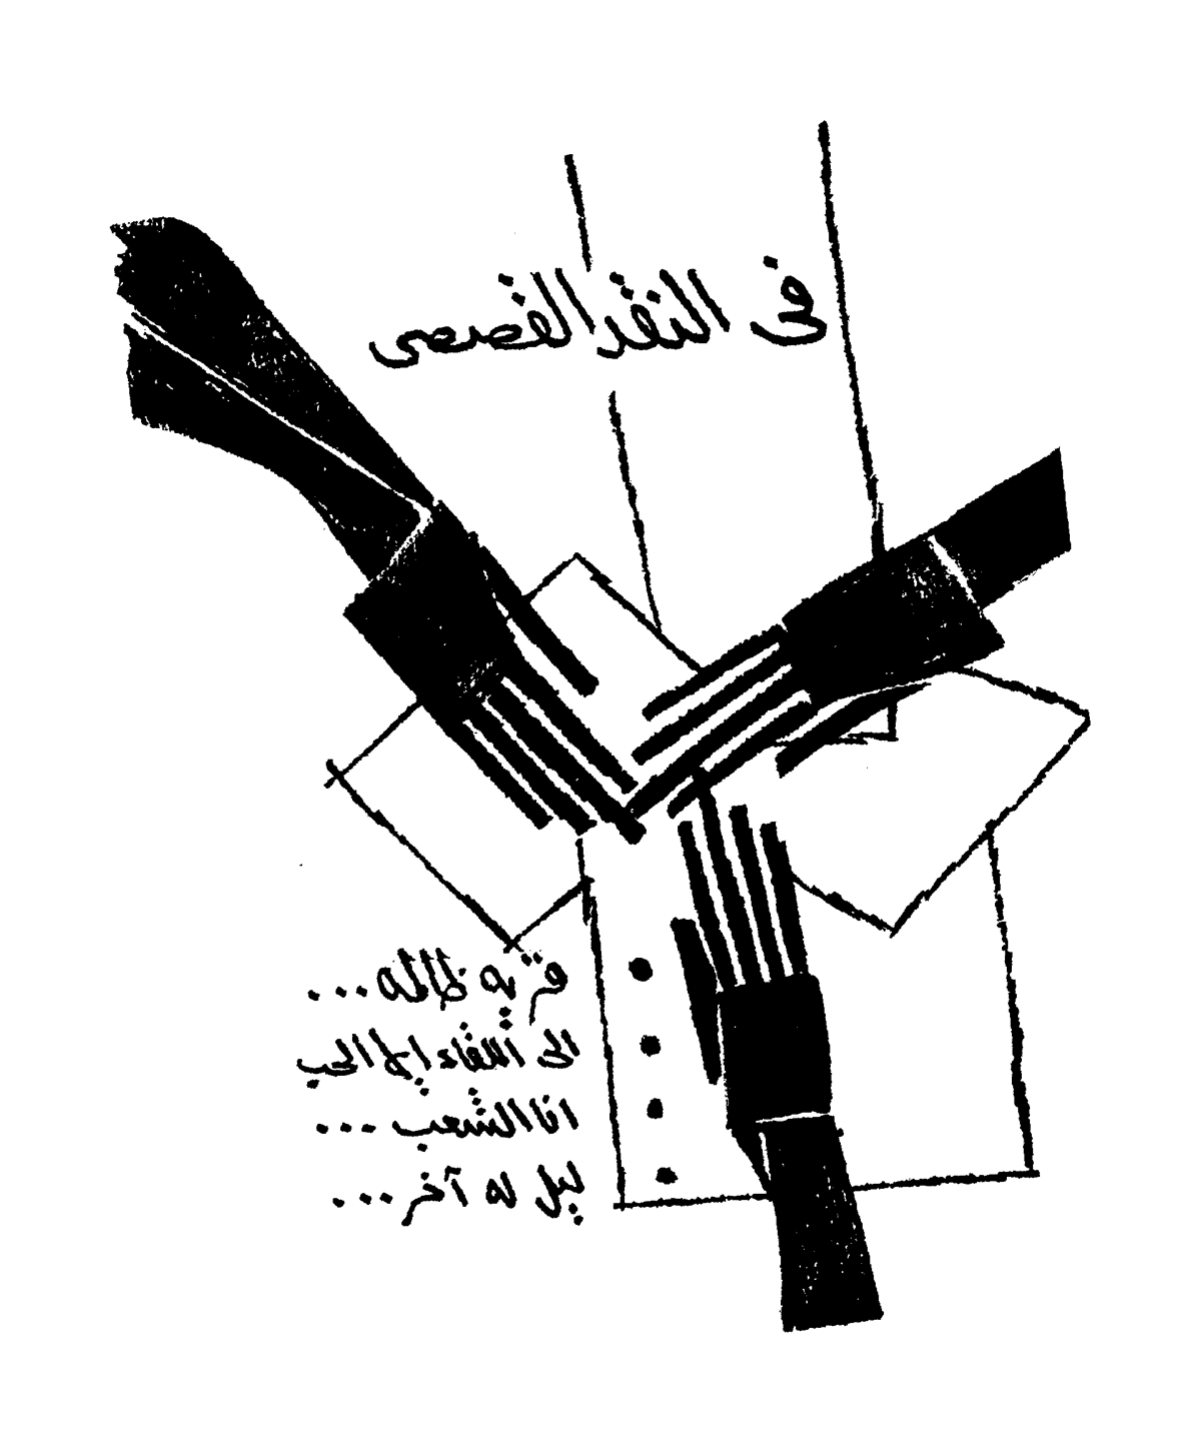 فى النقد القصصى
قرية ظالمه ...
الى اللقاء ايها الحب
انا الشعب ...
ليل له آخر ...